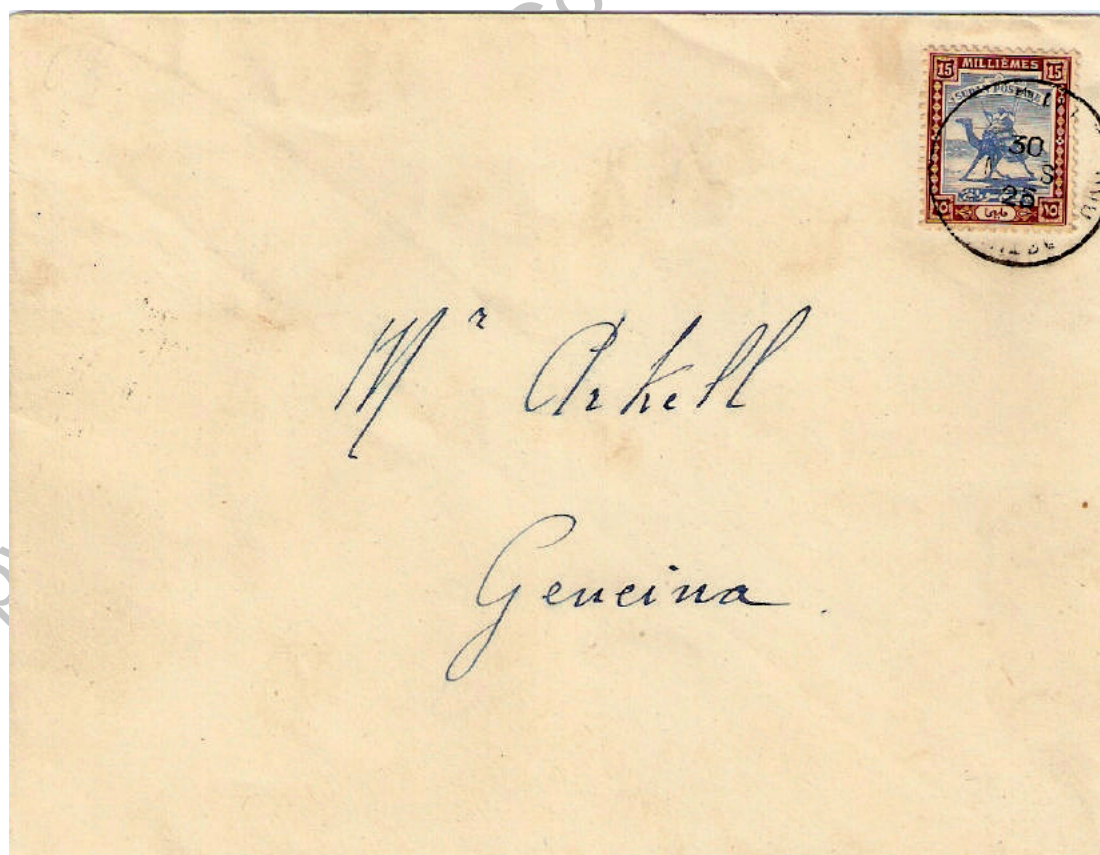 15 MILLIÈMES 15
SUDAN POSTAGE
30
S
25
١٥ ١٥
Mr Arkell
Geneina.